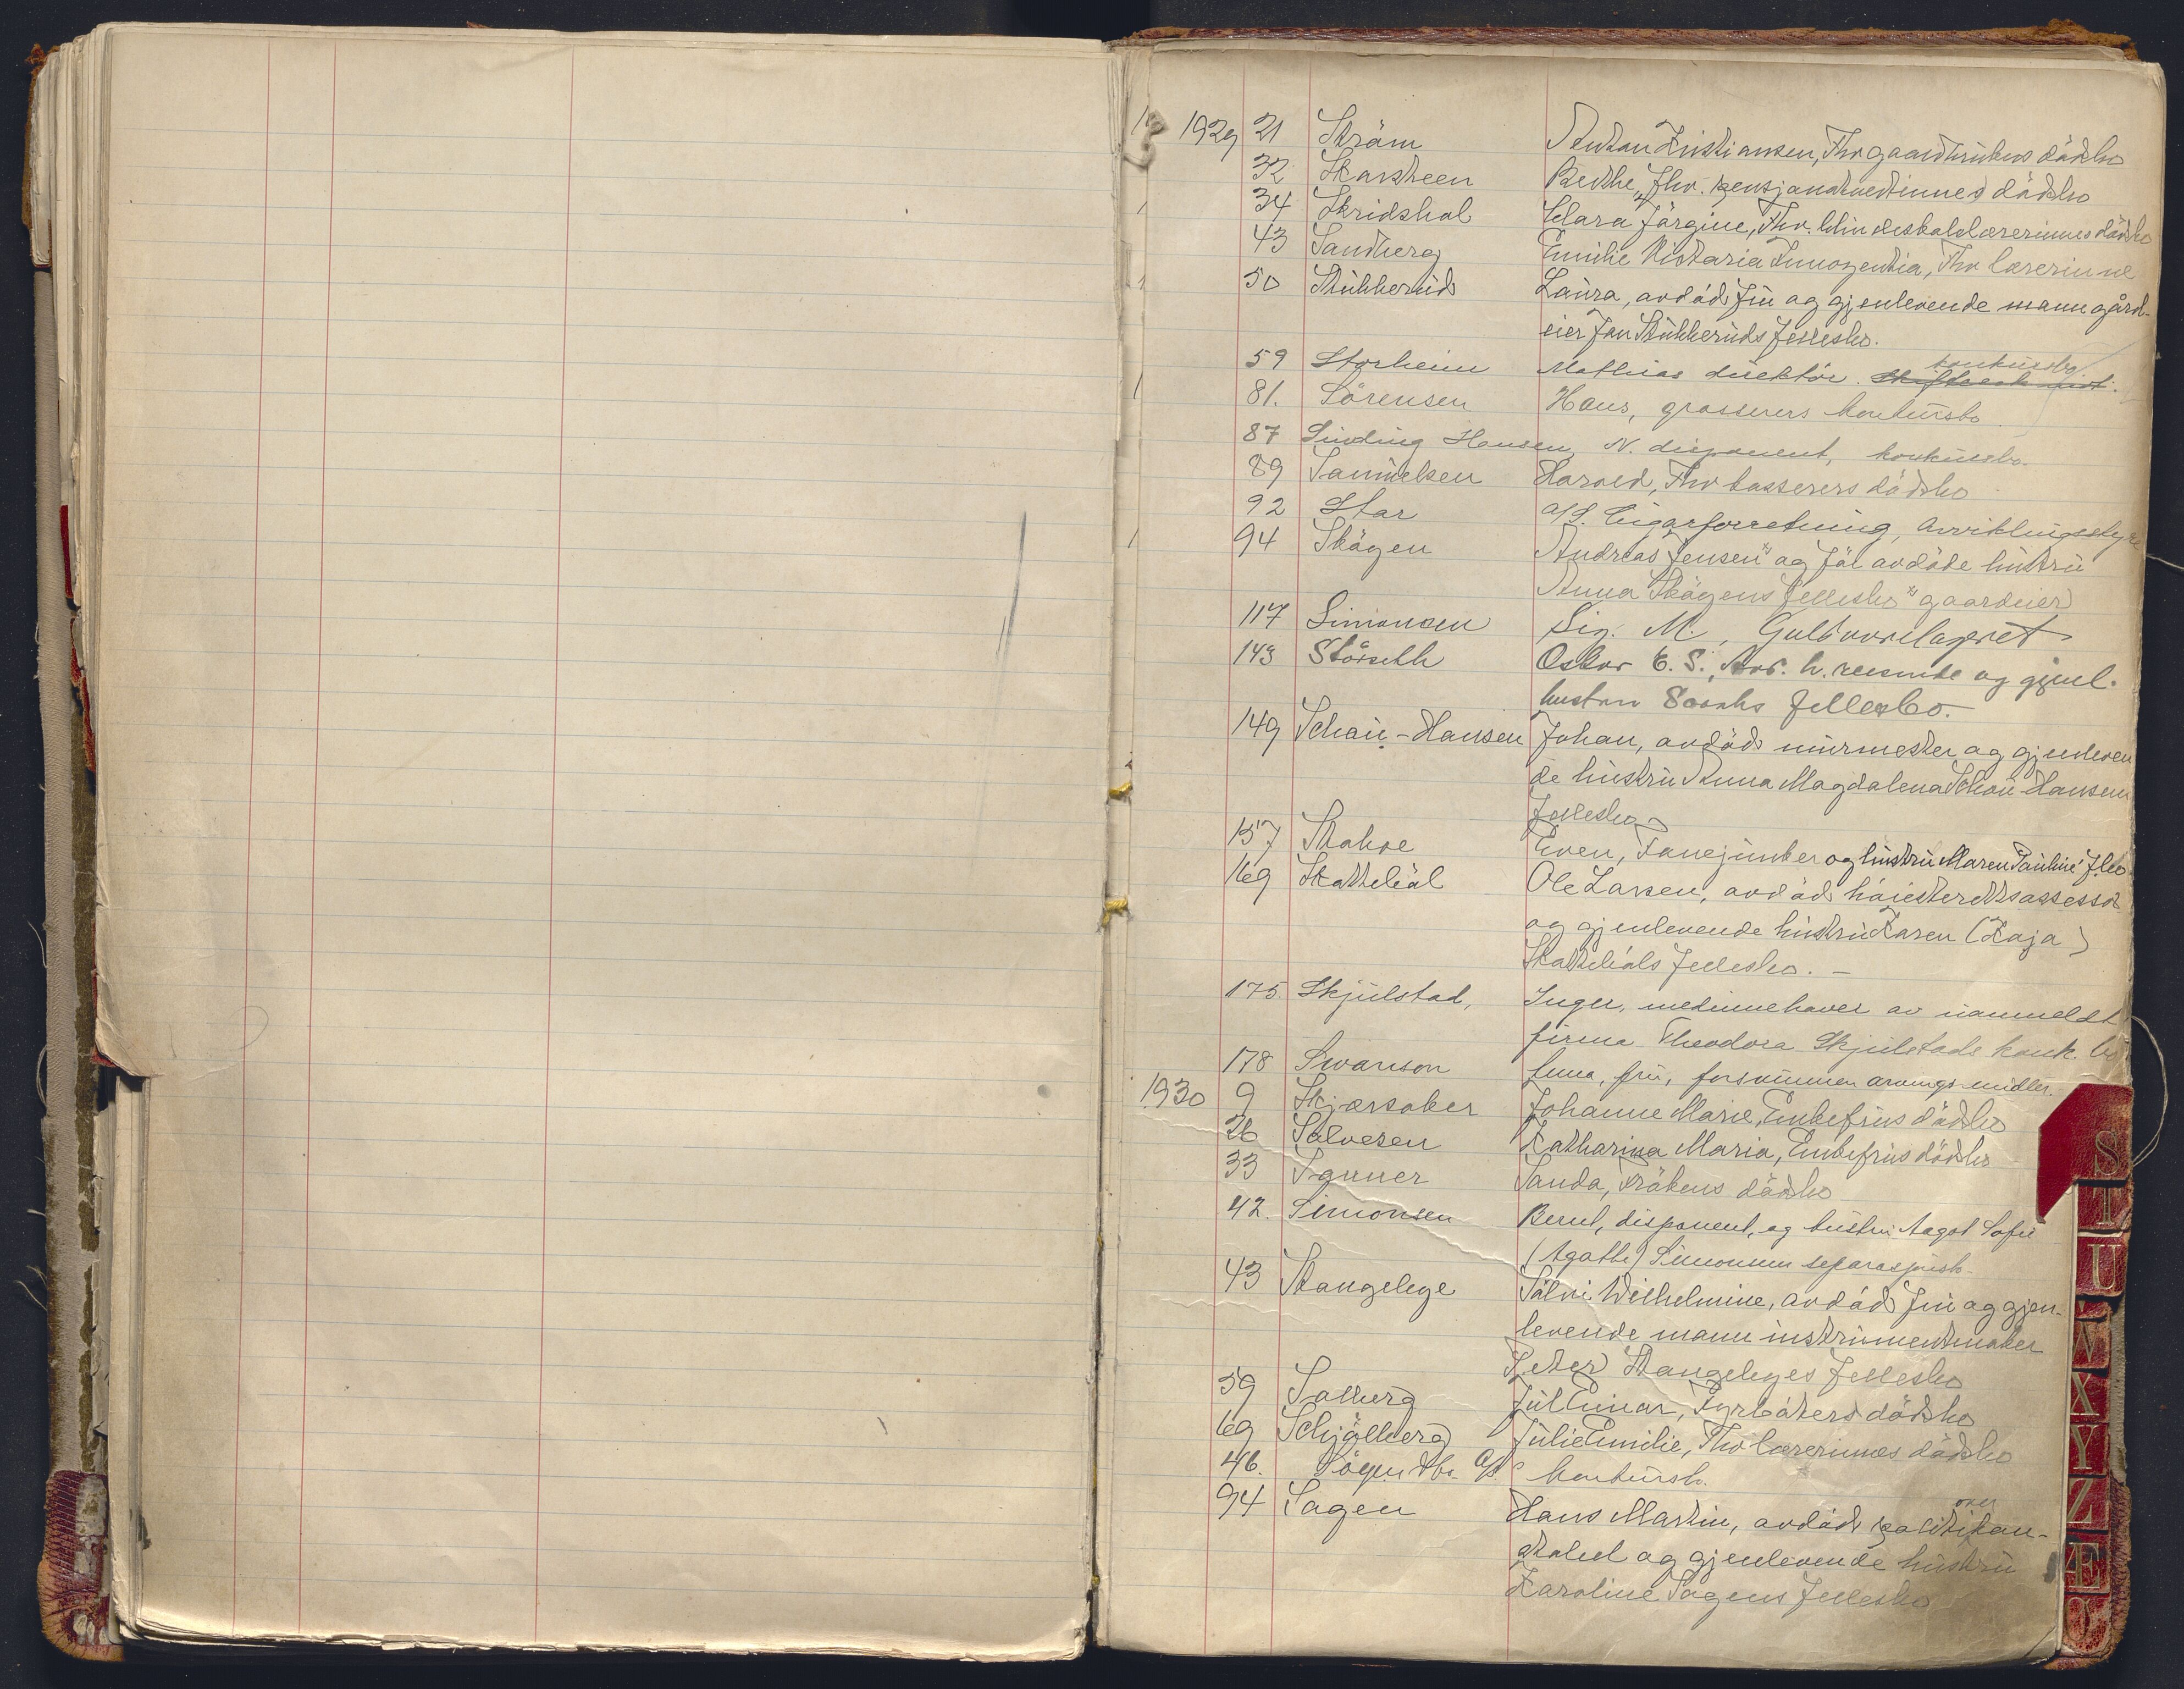 1929 21 Ström Anton Kristiansen, Fhv gaardbrukers dödsbo
32 Karsteen Berthe, fhv. pensjonatvertinnes dödsbo
34 Skridshol Clara Jörgine, Fhv. blindeskolelærerinnes dödsbo
43 Sandberg Emilie Victoria Innozentia, Fhv lærerinne
50 Stubberud Laura, avdöd fru og gjenlevende mann gård-
eier Jon Stubberuds fellesbo.
konkursbo
59 Storheim Mathias direktör.
81. Sörensen Hans, grosserers konkursbo
87 Sinding Hansen, N. disponent, konkursbo.
89 Samuelsen Harold, Fhv kasserers dödsbo
92 Star a/S. Cigarforretning, Avviklingsstyre
94 Skögen Andreas Jensen x) og før avdöde hustru
Anna Skögens fellesbo x) gaardeier
117 Simonsen Sig. M., Gullvarelageret
143 Störseth Oskar E. S., avd. h. reisende og gjenl.
hustru fellesbo.
149 Schau-Hansen Johan, avdöd murmester og gjenleven
de hustru Anna Magdalena Schau-Hansens
fellesbo
157 Even, Fanejunker og hustru Maren Pauline's f.bo
169 Skattebøl Ole Larsen, avdöd höiesterettsassessor
og gjenlevende hustru Karen (Kaja)
Skattebøls fellesbo. -
175. Skjulstad, Inger, medinnehaver av uanmeldt
firma Theodora Skjulstads konk. bo
178 Swanson Anna, fru, forsvunnen arvings midler.
1930 9 Skjærsaker Johanne Marie, Enkefrus dödsbo
26 Salvesen Katharina Maria, Enkefrus dödsbo
33 Sanda, Frökens dödsbo
42. Simonsen Bernt, disponent, og hustru Aagot Sofie
(Agathe) Simonsen separasjonsb.
43 Stangebye Sölvi Wilhelmine, avdöd fru og gjen-
levende mann instrumentmaker
Peter Stangebyes fellesbo
59 Solberg Jul Einar, Fyrböters dödsbo
69 Schjölberg Julie Emilie, Fhv lærerinnes dödsbo
46. a/s konkursb.
over
94 Sagen Hans Martin, avdöd politikon-
stabel og gjenlevende hustru
Karoline Sagens fellesbo
S
T
U
V
X
Y
Z
Æ
Ø